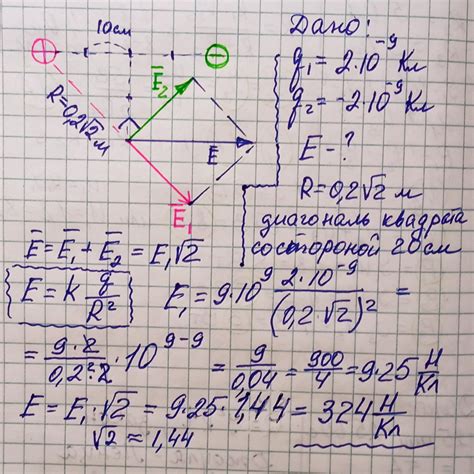 10см
Дано:
⊕ ⊖
E̅₂
q₁ = 2·10⁻⁹ Кл
q₂ = -2·10⁻⁹ Кл
R=0,2√2 м
E̅
E - ?
E̅₁
R = 0,2√2 м
диагональ квадрата
со стороной 20см
E̅ = E̅₁ + E̅₂ = E₁√2
E = k q/R²
E₁ = 9·10⁹ 2·10⁻⁹/(0,2·√2)² =
= 9·2/0,2²·2 · 10⁹⁻⁹ = 9/0,04 = 900/4 = 9·25 Н/Кл
E = E₁·√2 = 9·25·1,44 = 324 Н/Кл
√2 ≈ 1,44